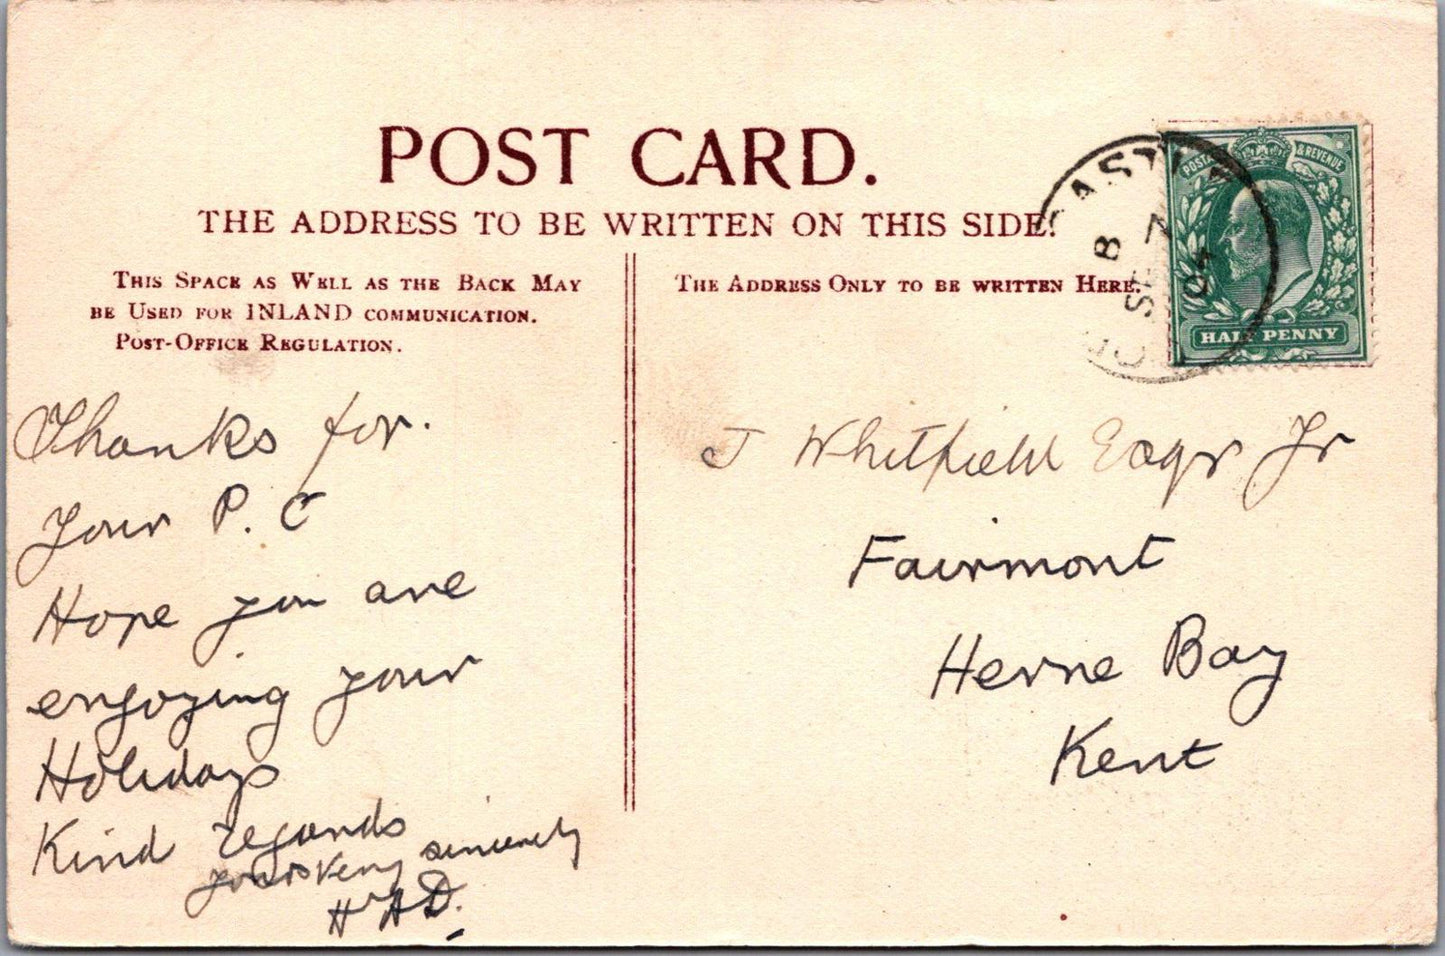 POST CARD.
THE ADDRESS TO BE WRITTEN ON THIS SIDE.
THIS SPACE AS WELL AS THE BACK MAY
BE USED FOR INLAND COMMUNICATION.
POST-OFFICE REGULATION.
THE ADDRESS ONLY TO BE WRITTEN HERE.
POSTAGE & REVENUE
HALF PENNY
B
SE 7
04
Thanks for.
Your P. C
Hope you are
enjoying your
Holidays
Kind regards
yours very sincerely
H A D.
J Whitfield Esqr Jr
Fairmont
Herne Bay
Kent